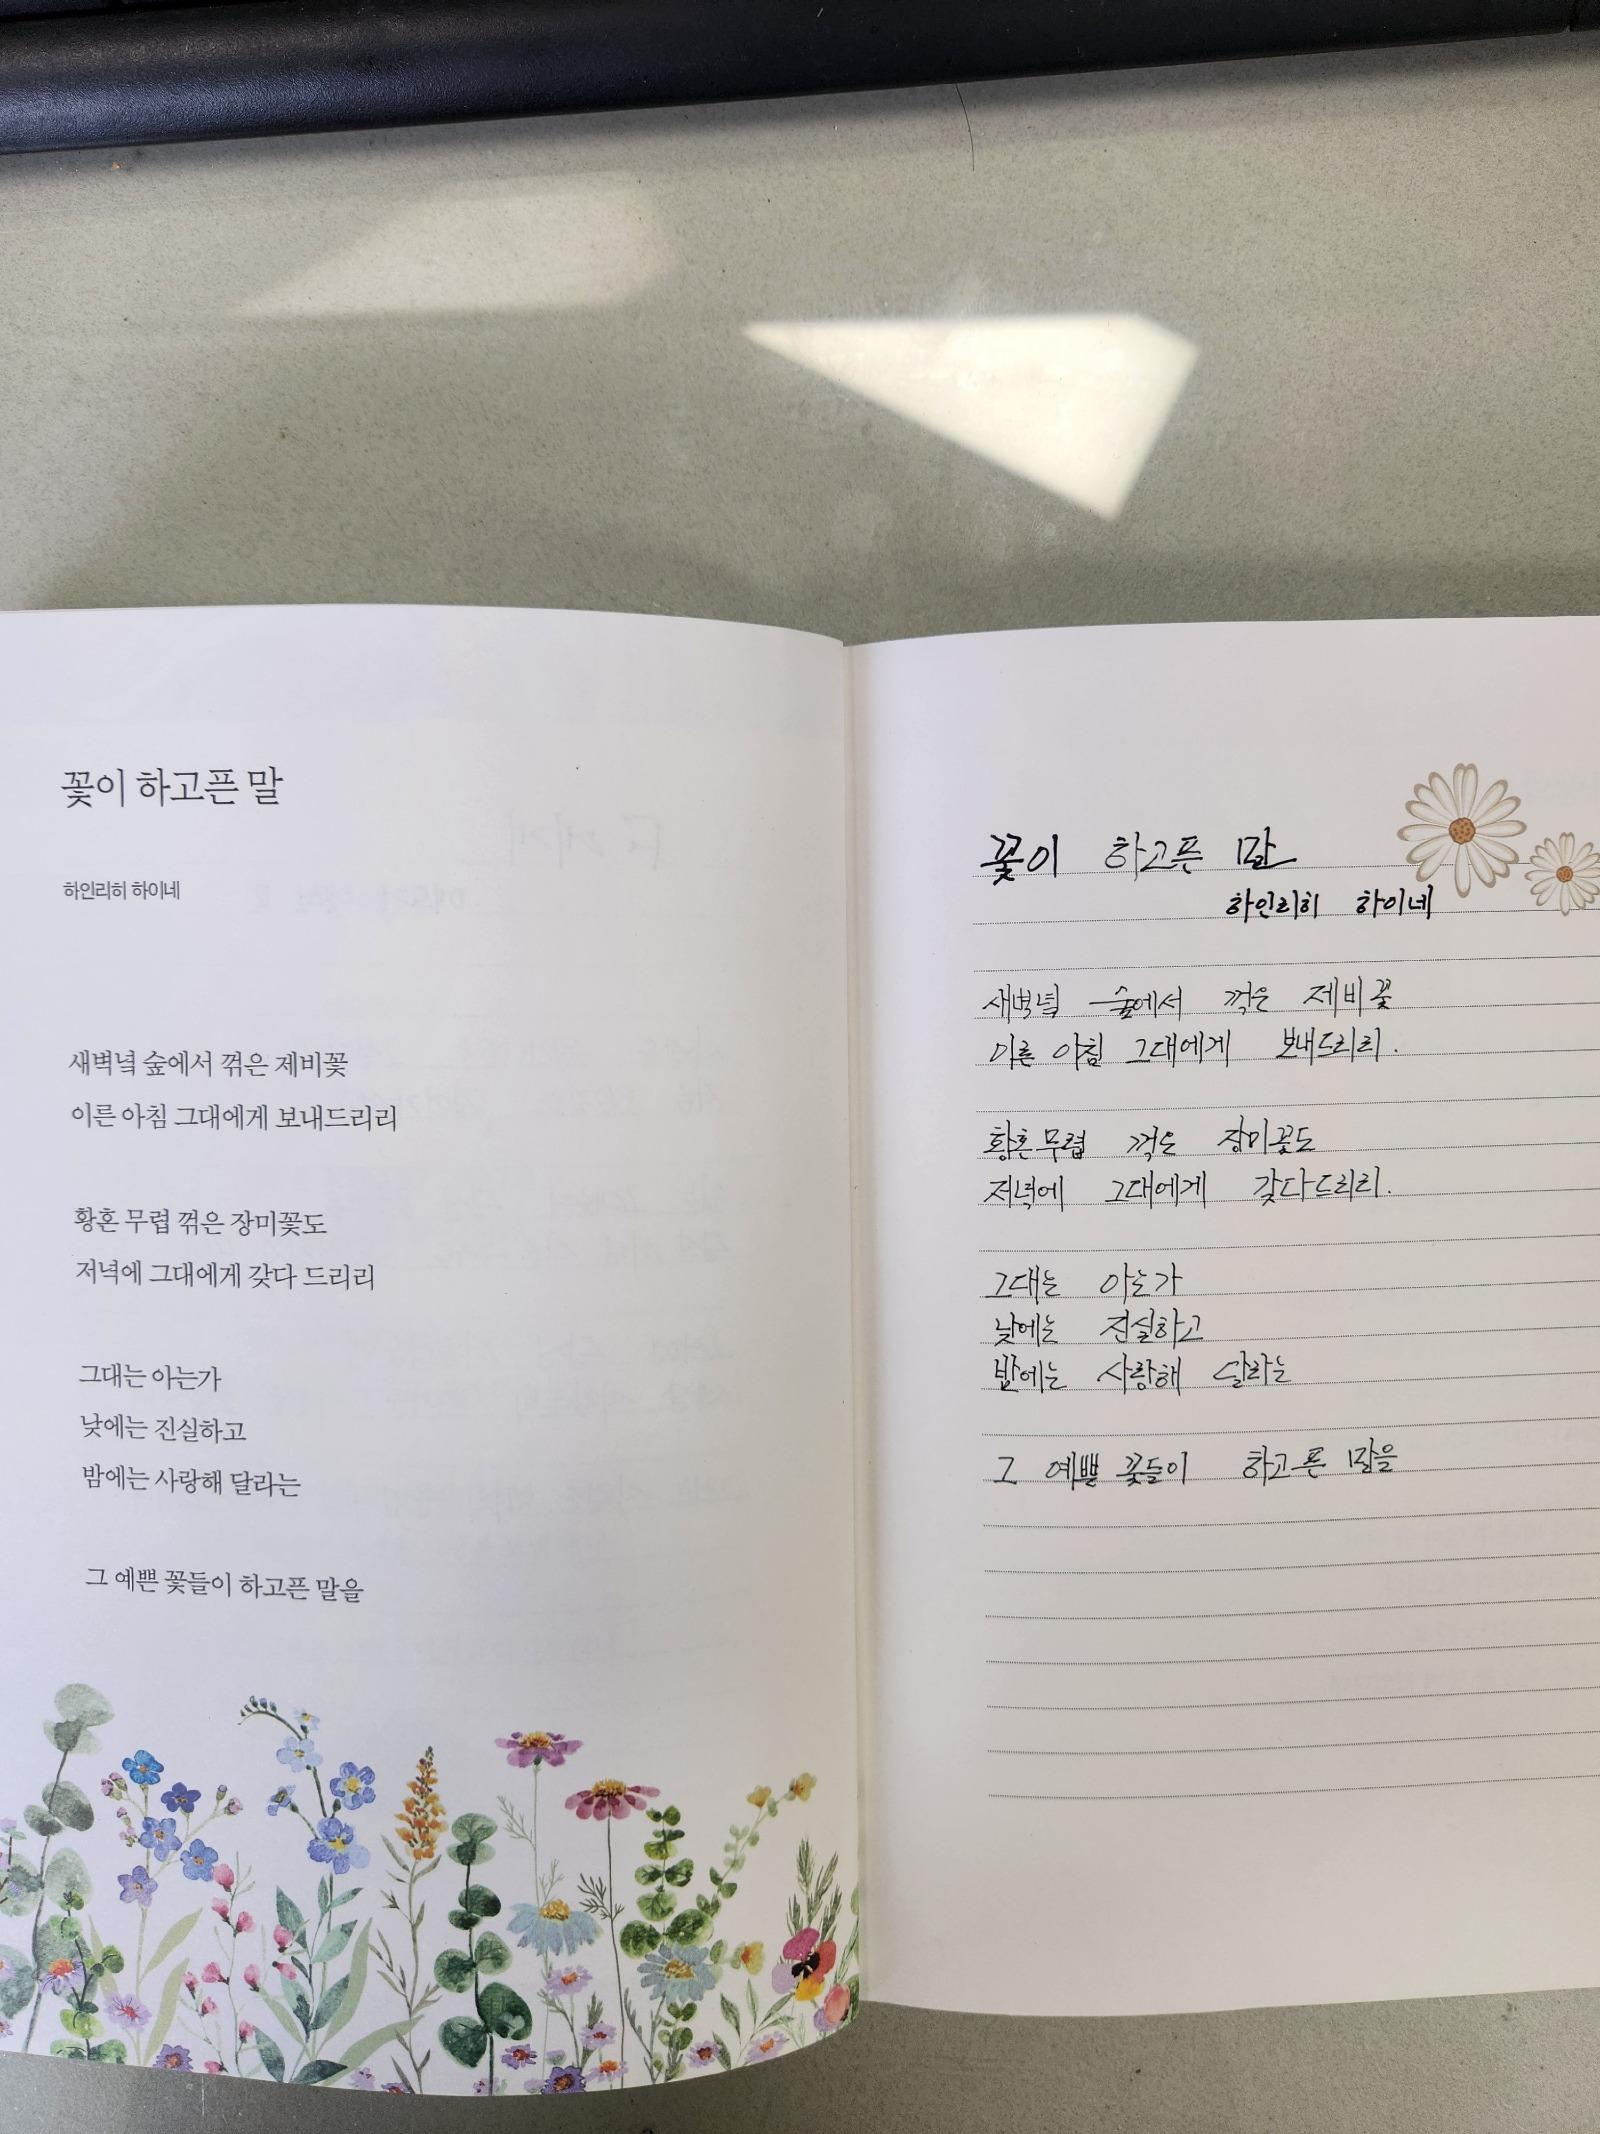 꽃이 하고픈 말
하인리히 하이네
새벽녘 숲에서 꺾은 제비꽃
이른 아침 그대에게 보내드리리
황혼 무렵 꺾은 장미꽃도
저녁에 그대에게 갖다 드리리
그대는 아는가
낮에는 진실하고
밤에는 사랑해 달라는
그 예쁜 꽃들이 하고픈 말을
꽃이 하고픈 말
하인리히 하이네
새벽녘 숲에서 꺾은 제비꽃
이른 아침 그대에게 보내드리리.
황혼무렵 꺾은 장미꽃도
저녁에 그대에게 갖다드리리.
그대는 아는가
낮에는 진실하고
밤에는 사랑해 달라는
그 예쁜 꽃들이 하고픈 말을